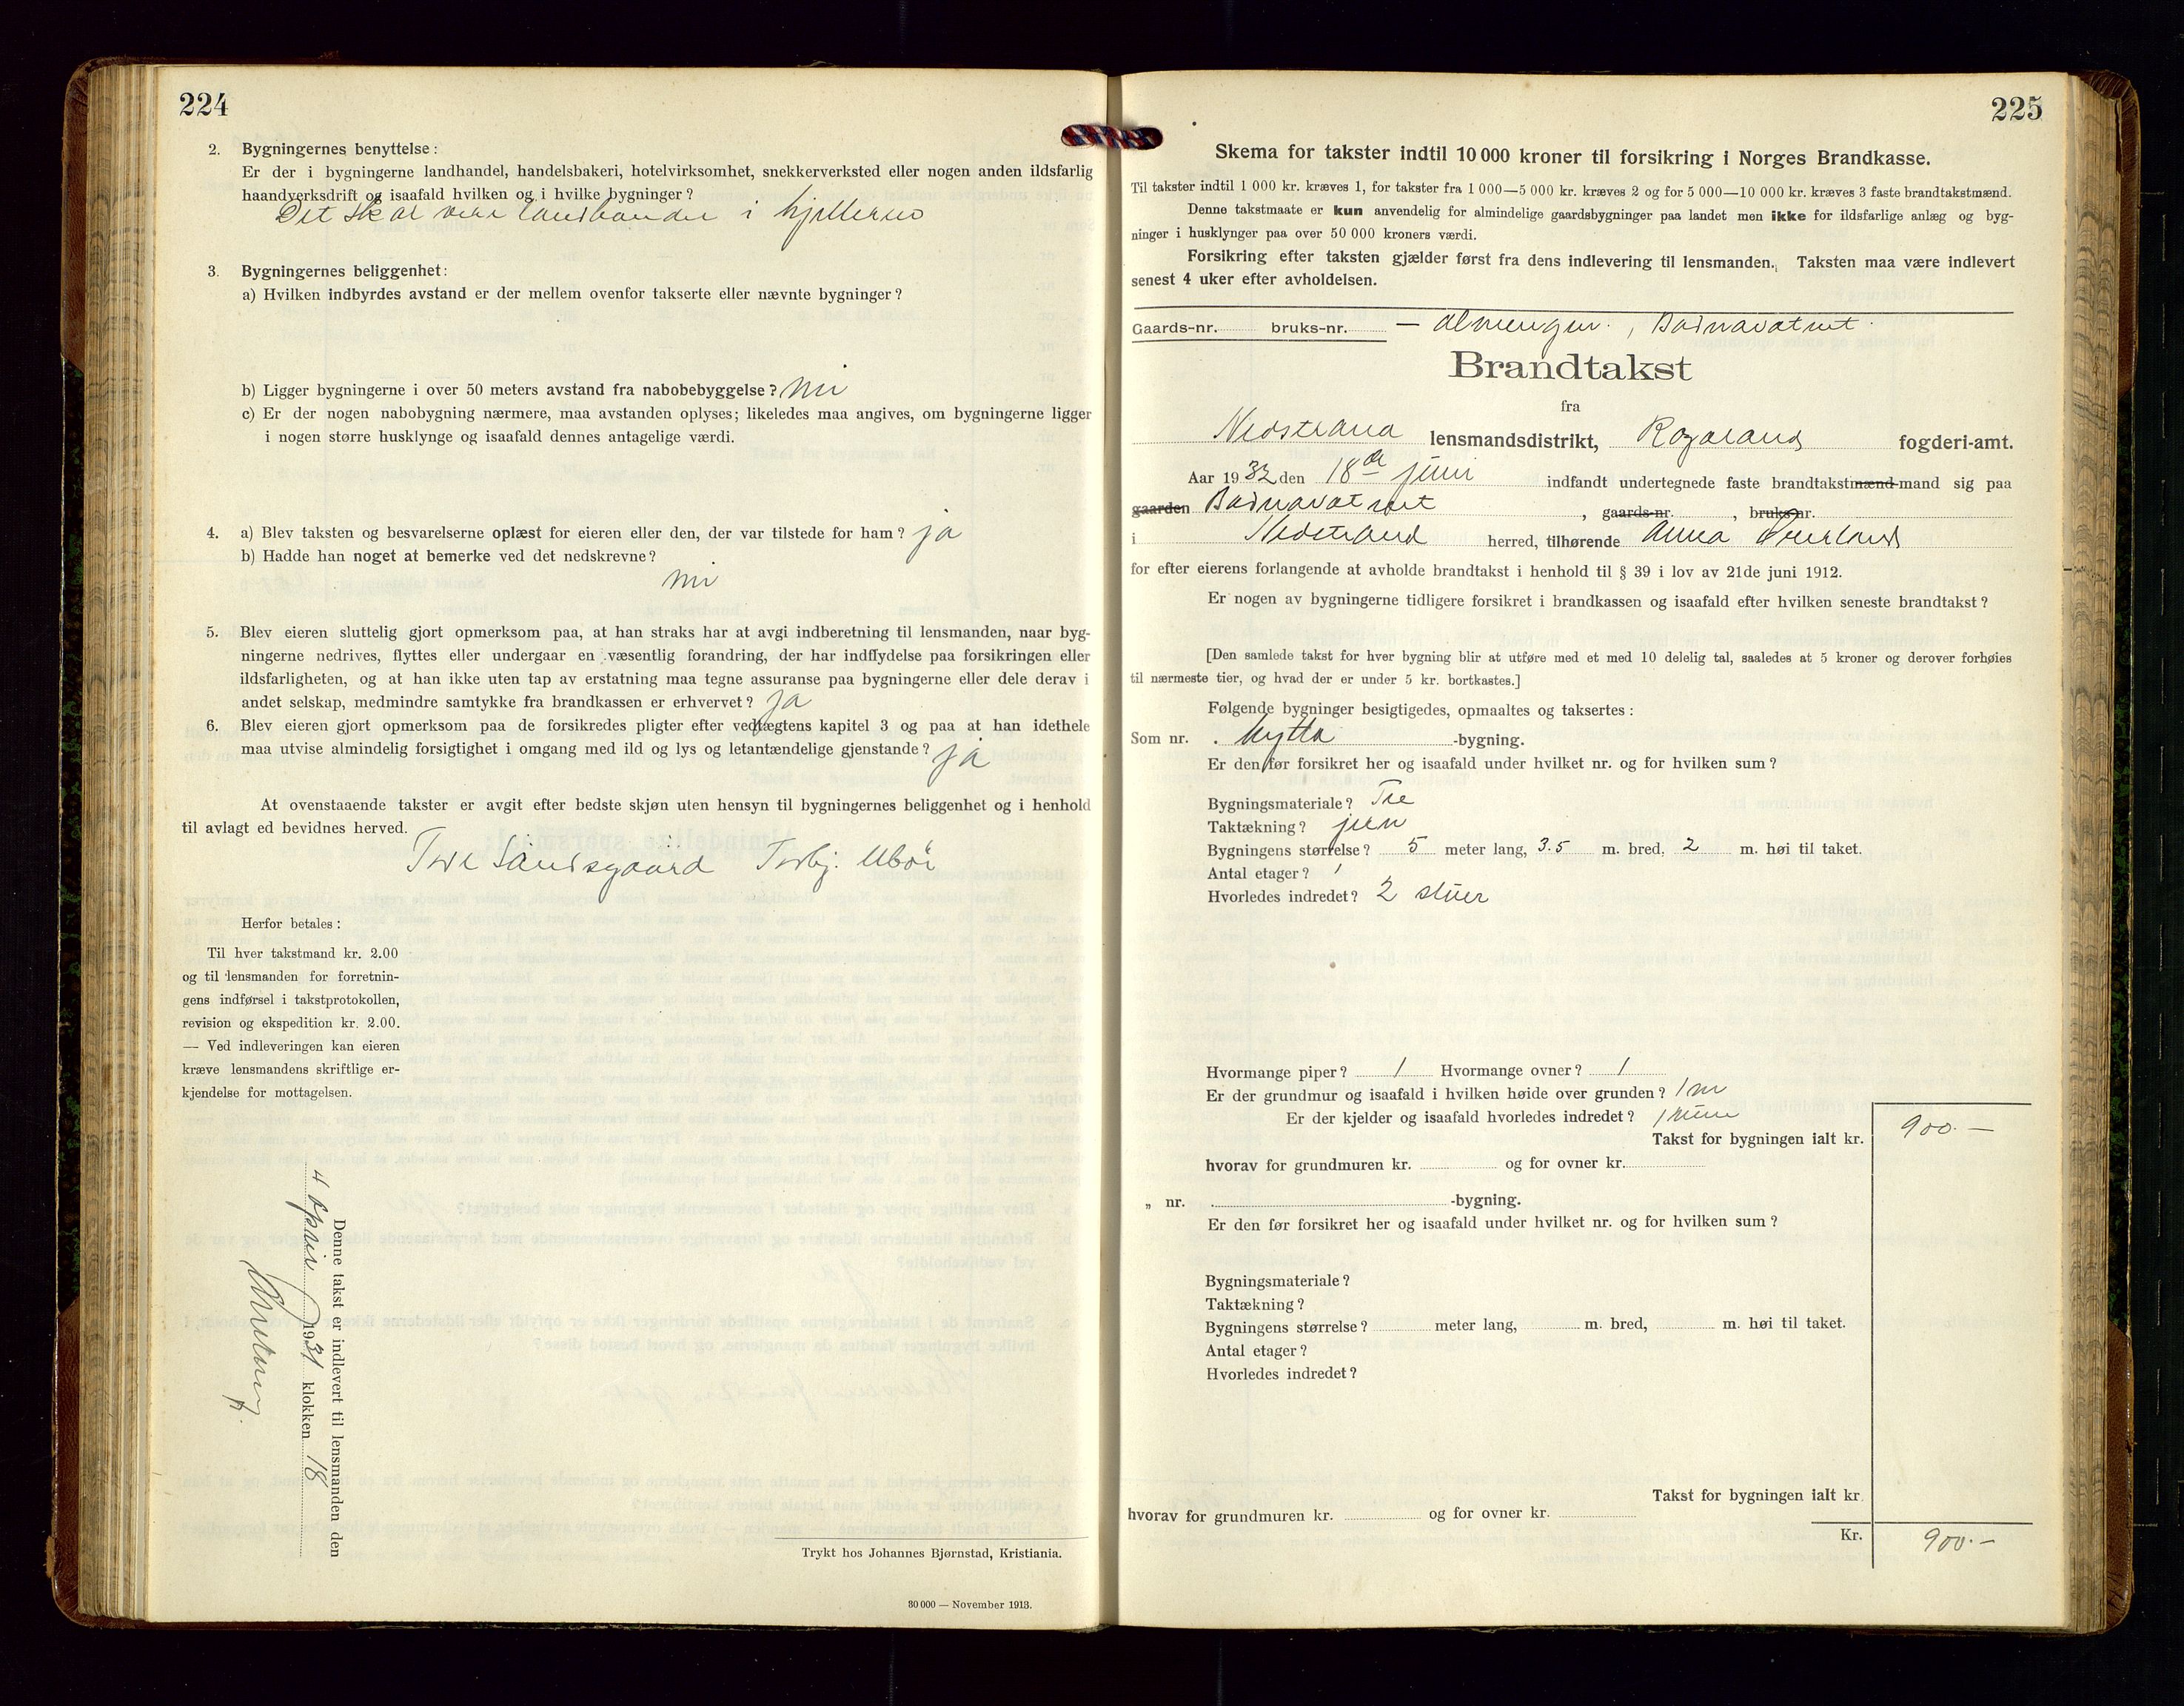 224
2. Bygningernes benyttelse:
Er der i bygningerne landhandel, handelsbakeri, hotelvirksomhet, snekkerverksted eller nogen anden ildsfarlig
haandverksdrift og isaafald hvilken og i hvilke bygninger?
Det skal være landhandel i kjelleren
3. Bygningernes beliggenhet:
a) Hvilken indbyrdes avstand er der mellem ovenfor takserte eller nævnte bygninger?
b) Ligger bygningerne i over 50 meters avstand fra nabobebyggelse? nei
c) Er der nogen nabobygning nærmere, maa avstanden oplyses; likeledes maa angives, om bygningerne ligger
i nogen større husklynge og isaafald dennes antagelige værdi.
4. a) Blev taksten og besvarelserne oplæst for eieren eller den, der var tilstede for ham? ja
b) Hadde han noget at bemerke ved det nedskrevne?
nei
5. Blev eieren sluttelig gjort opmerksom paa, at han straks har at avgi indberetning til lensmanden, naar byg-
ningerne nedrives, flyttes eller undergaar en væsentlig forandring, der har indflydelse paa forsikringen eller
ildsfarligheten, og at han ikke uten tap av erstatning maa tegne assuranse paa bygningerne eller dele derav i
andet selskap, medmindre samtykke fra brandkassen er erhvervet? ja
6. Blev eieren gjort opmerksom paa de forsikredes pligter efter vedtægtens kapitel 3 og paa at han idethele
maa utvise almindelig forsigtighet i omgang med ild og lys og letantændelige gjenstande? ja
At ovenstaaende takster er avgit efter bedste skjøn uten hensyn til bygningernes beliggenhet og i henhold
til avlagt ed bevidnes herved.
Tore Sandsgaard Torbj. Ubø
Herfor betales:
Til hver takstmand kr. 2.00
og til lensmanden for forretnin-
gens indførsel i takstprotokollen,
revision og ekspedition kr. 2.00.
— Ved indleveringen kan eieren
kræve lensmandens skriftlige er-
kjendelse for mottagelsen.
Denne takst er indlevert til lensmanden den
4 april 1931 klokken 18
Trykt hos Johannes Bjørnstad, Kristiania.
30 000 — November 1913.
225
Skema for takster indtil 10 000 kroner til forsikring i Norges Brandkasse.
Til takster indtil 1 000 kr. kræves 1, for takster fra 1 000—5 000 kr. kræves 2 og for 5 000—10 000 kr. kræves 3 faste brandtakstmænd.
Denne takstmaate er kun anvendelig for almindelige gaardsbygninger paa landet men ikke for ildsfarlige anlæg og byg-
ninger i husklynger paa over 50 000 kroners værdi.
Forsikring efter taksten gjælder først fra dens indlevering til lensmanden. Taksten maa være indlevert
senest 4 uker efter avholdelsen.
Gaards-nr. bruks-nr. — almengen, Bodnavatnet
Brandtakst
fra
Nedstrand lensmandsdistrikt, Rogaland fogderi-amt.
Aar 1932 den 18de juni indfandt undertegnede faste brandtakstmænd-mand sig paa
gaarden Bodnavatnet, gaards-nr. , bruks-nr.
i Nedstrand herred, tilhørende Anna
for efter eierens forlangende at avholde brandtakst i henhold til § 39 i lov av 21de juni 1912.
Er nogen av bygningerne tidligere forsikret i brandkassen og isaafald efter hvilken seneste brandtakst?
[Den samlede takst for hver bygning blir at utføre med et med 10 delelig tal, saaledes at 5 kroner og derover forhøies
til nærmeste tier, og hvad der er under 5 kr. bortkastes.]
Følgende bygninger besigtigedes, opmaaltes og taksertes:
Som nr. . hytta -bygning.
Er den før forsikret her og isaafald under hvilket nr. og for hvilken sum?
Bygningsmateriale? Tre
Taktækning? jern
Bygningens størrelse? 5 meter lang, 3.5 m. bred, 2 m. høi til taket.
Antal etager? 1
Hvorledes indredet? 2 stuer
Hvormange piper? 1 Hvormange ovner? 1
Er der grundmur og isaafald i hvilken høide over grunden? 1 m
Er der kjelder og isaafald hvorledes indredet? 1 rum
Takst for bygningen ialt kr. 900.—
hvorav for grundmuren kr. og for ovner kr.
„ nr. -bygning.
Er den før forsikret her og isaafald under hvilket nr. og for hvilken sum?
Bygningsmateriale?
Taktækning?
Bygningens størrelse? meter lang, m. bred, m. høi til taket.
Antal etager?
Hvorledes indredet?
Takst for bygningen ialt kr.
hvorav for grundmuren kr. og for ovner kr.
Kr. 900.—